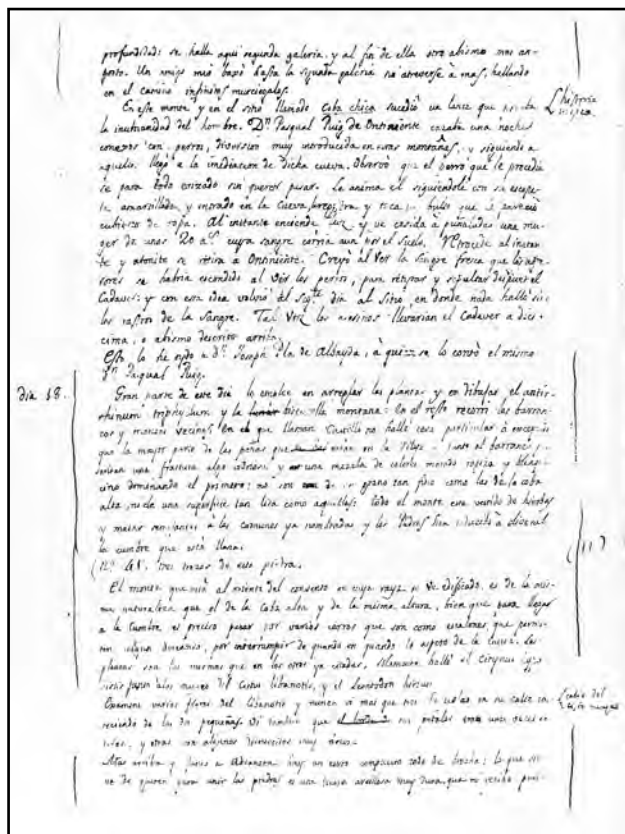 profundidad: se halla aqui segunda galeria, y al fin de ella otro abismo mas an-
gosto. Un amigo mio baxó hasta la segunda galeria no atreverse à mas, hallando
en el camino infinitos murcielagos.
En este monte y en el sitio llamado Coba chica sucedió un lance que
la inhumanidad del hombre. Dn Pasqual Puig de Ontiniente cazaba una noche
conexos con perros, diversion muy introducida en estas montañas, y siguiendo a
aquellos llegó a la inmediacion de dicha cueva. Observó que el perro que le precedia
se para todo erizado sin querer pasar. Le anima el siguiendole con su escope-
ta amartillada y entrado en la Cueva, y toca un bulto que le pareció
cubierto de ropa. Al instante enciende luz, y ve cosida à puñaladas una mu-
ger de unos 20 as. cuya sangre corria aun por el suelo. Retrocede al instan-
te y atonito se retira a Ontiniente. Creyó al ver la sangre fresca que los agre-
sores se habrian escondido al oir los perros, para retirar y sepultar despues el
Cadaver: y con esta idea volvió el sigte. dia al sitio en donde nada halló si no
los rastros de la sangre. Tal vez los asesinos llevarian el Cadaver a dicha
cima, o abismo descrito arriba.
Esto lo he oydo a Dn. Joseph Pla de Albayda, à quien se lo contó el mismo
Dn Pasqual Puig.
historia
dia 18.
Gran parte de este dia lo emplee en arreglar las plantas y en dibujar el antir-
rhinum triphyllum y la montana: En el resto recorrí los barran-
cos y montes vecinos. En el que llaman Castillo no hallé cosa particular à excepcion
que la mayor parte de las peñas que estan en la junto al barranco pre-
sentan una fractura algo y una mezcla de colores morado roxiza y blanq-
uecino dominando el primero: no son de grano tan fino como las de la coba
alta, ni de una superficie tan lisa como aquellas: todo el monte esta vestido de hierbas
y matas semejantes à las comunes ya nombradas y los Padres han reducido à olivares
la cumbre que está llana.
tres trozos de esta piedra.
El monte que cae al oriente del convento en cuya rayz se ve edificado, es de la mis-
ma naturaleza que el de la Coba alta y de la misma altura, bien que para llegar
a la Cumbre es preciso pasar por varios cerros que son como escalones, que permi-
ten algun descanso, por interrumpir de quando en quando lo aspero de la cuesta. Las
plantas son las mismas que en los otros ya citados, solamente hallé el
del Cistus libanotis, y el leontodon hirsut.
Examiné varias flores del libanotis y nunca vi mas que tres en su caliz ca-
reciendo de las dos pequeñas. Vi tambien que sus petalos eran unas veces en-
teros, y otras con algunos
caliz del
Mas arriba y hay un cerro compuesto todo de brecha: lo que sir-
ve de para unir las piedras es una arcillosa muy dura, que